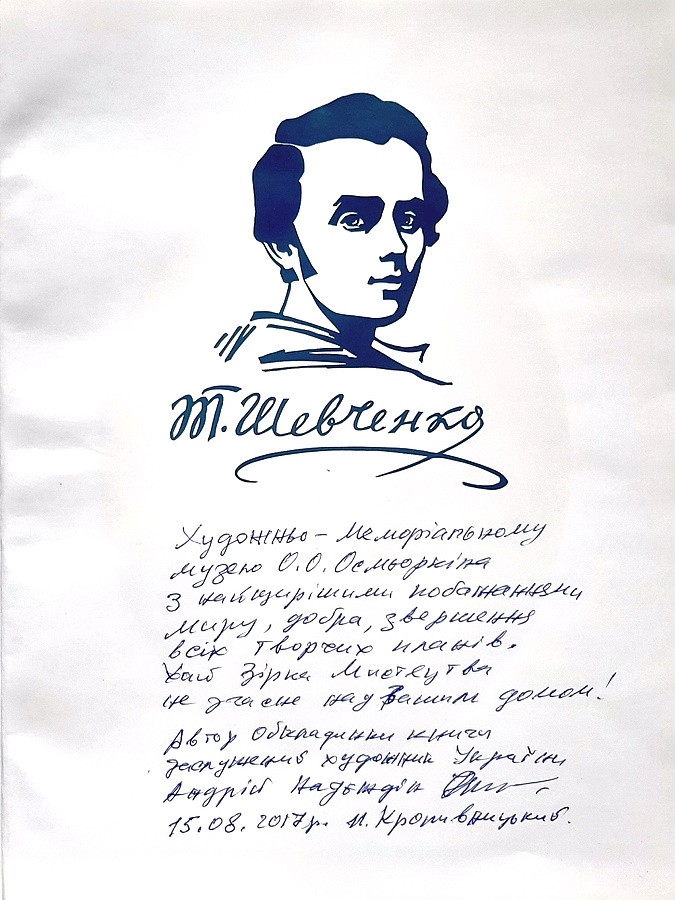 Т. Шевченко
Художньо-Меморіальному
музею О.О. Осмьоркіна
з найщирішими побажаннями
миру, добра, звершення
всіх творчих планів.
Хай Зірка Мистецтва
не згасне над Вашим домом!
Автор Обкладинки книги
заслужений художник України
Андрій Надєждін
15.08.2017р. м. Кропивницький.